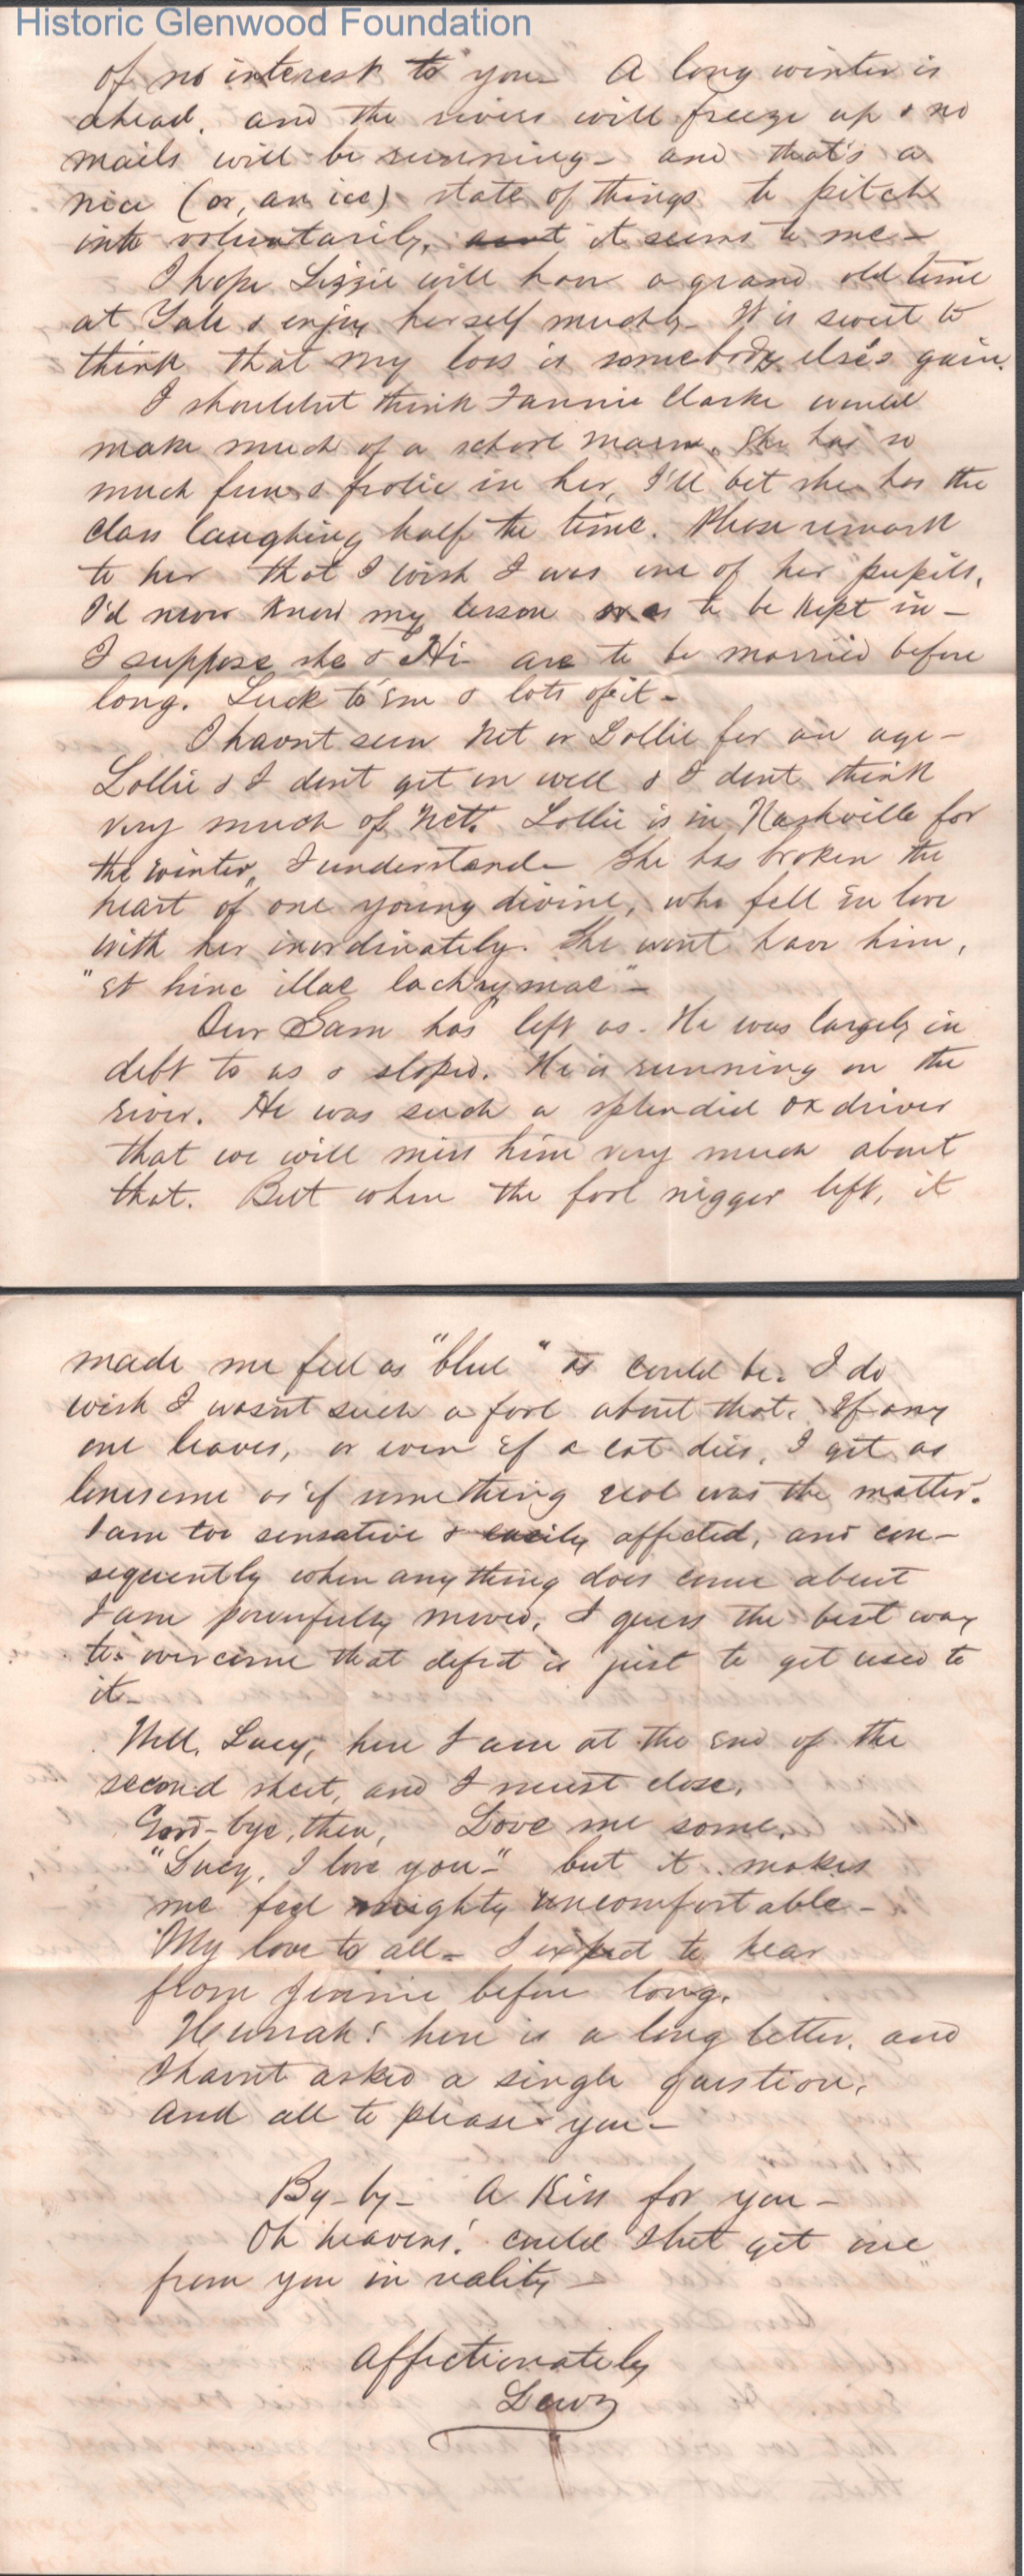 Historic Glenwood Foundation
of no interest to you– A long winter is
ahead, and the rivers will freeze up & no
mails will be running– and that's a
nice (or, an ice) state of things to pitch
into voluntarily, it seems to me–
I hope Lizzie will have a grand old time
at Yale & enjoy herself muchly– It is sweet to
think that my loss is somebody else's gain.
I shouldnt think Fannie Clarke would
make much of a school marm. She has so
much fun & frolic in her, I'll bet she has the
class laughing half the time. Please remark
to her that I wish I was one of her pupils,
I'd never know my lesson so as to be kept in–
I suppose she & Hi– are to be married before
long. Luck to 'em & lots of it–
I havnt seen Net or Lollie for an age–
Lollie & I dont get on well & I dont think
very much of Net. Lollie is in Nashville for
the winter, I understand– She has broken the
heart of one young divine, who fell in love
with her inordinately. She wont have him,
"et hinc illae lachrymae"–
Our Sam has left us– He was largely in
debt to us & sloped. He is running on the
river. He was such a splendid ox driver
that we will miss him very much about
that. But when the fool nigger left, it
made me feel as "blue" as could be. I do
wish I wasnt such a fool about that. If any
one leaves, or even if a cat dies, I get as
lonesome as if something real was the matter.
I am too sensative & easily affected, and con-
sequently when anything does come about
I am powerfully moved. I guess the best way
to overcome that defect is just to get used to
it–
Well, Lucy, here I am at the end of the
second sheet, and I must close.
Good-bye, then, Love me some.
"Lucy, I love you–" but it makes
me feel mighty uncomfortable–
My love to all– I expect to hear
from Jennie before long.
Hurrah! here is a long letter, and
I havnt asked a single question,
and all to please you–
By–by– A Kiss for you–
Oh heavens! could I but get one
from you in reality–
Affectionately
Lewy